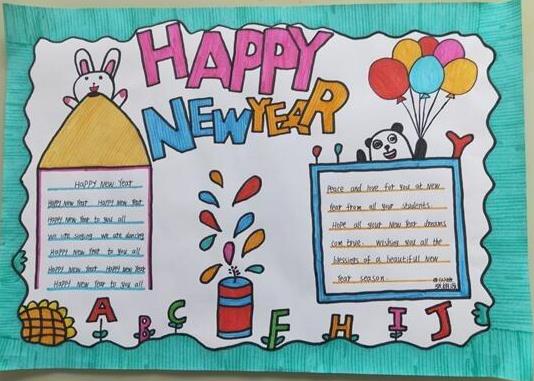 HAPPY
NEW YEAR
Happy New Year
Happy New Year Happy New Year
Happy New Year to you all
We are singing we are dancing
Happy New Year to you all
Happy New Year Happy New Year
Happy New Year to you all
Peace and love for you at New
Year from all your students.
Hope all your New Year dreams
come true. Wishing you all the
blessings of a beautiful New
Year season.
A B C F H I J